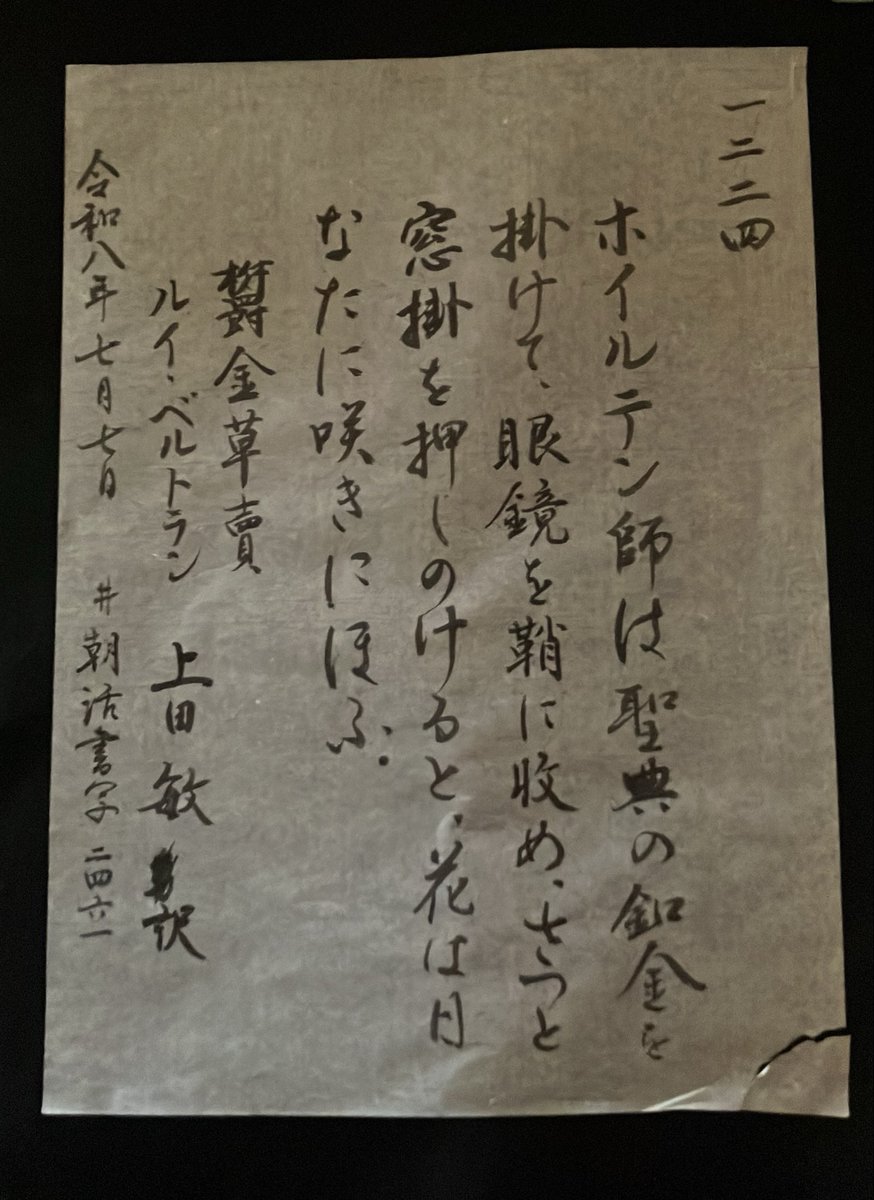 一二二四
ホイルテン師は聖典の釦金を
掛けて、眼鏡を鞘に収め、さつと
窓掛を押しのけると、花は日
なたに咲きにほふ。
欝金草賣
ルイ・ベルトラン 上田敏 訳
令和八年七月七日 #朝活書写 二四六一